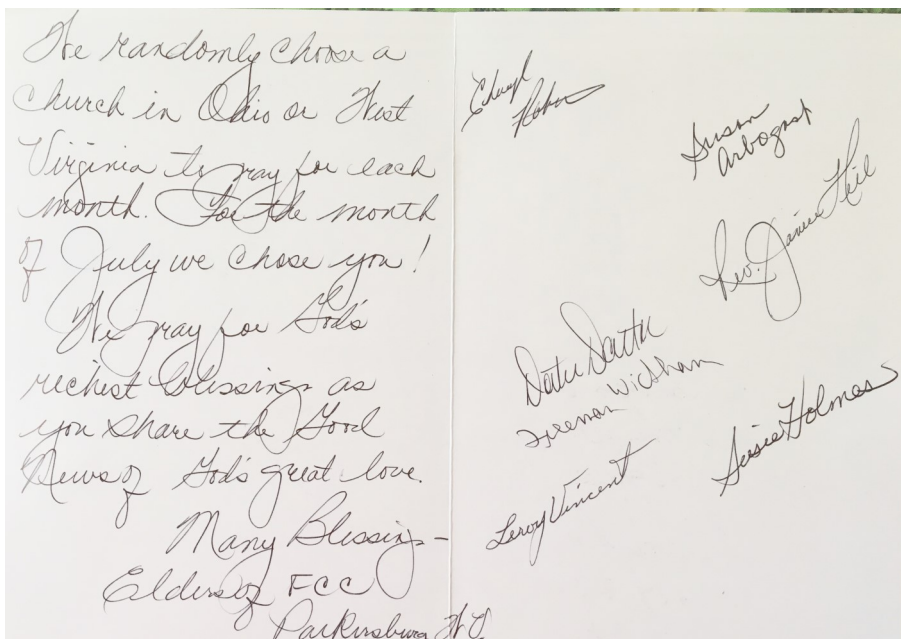 We randomly choose a
church in Ohio or West
Virginia to pray for each
month. For the month
of July we chose you!
We pray for God's
richest blessings as
you share the Good
News of God's great love.
Many Blessings -
Elders of FCC
Parkersburg W.V.
Cheryl
Susan
Arbogast
Rev. Janice
Freeman Wickham
Susie Holmes
Leroy Vincent